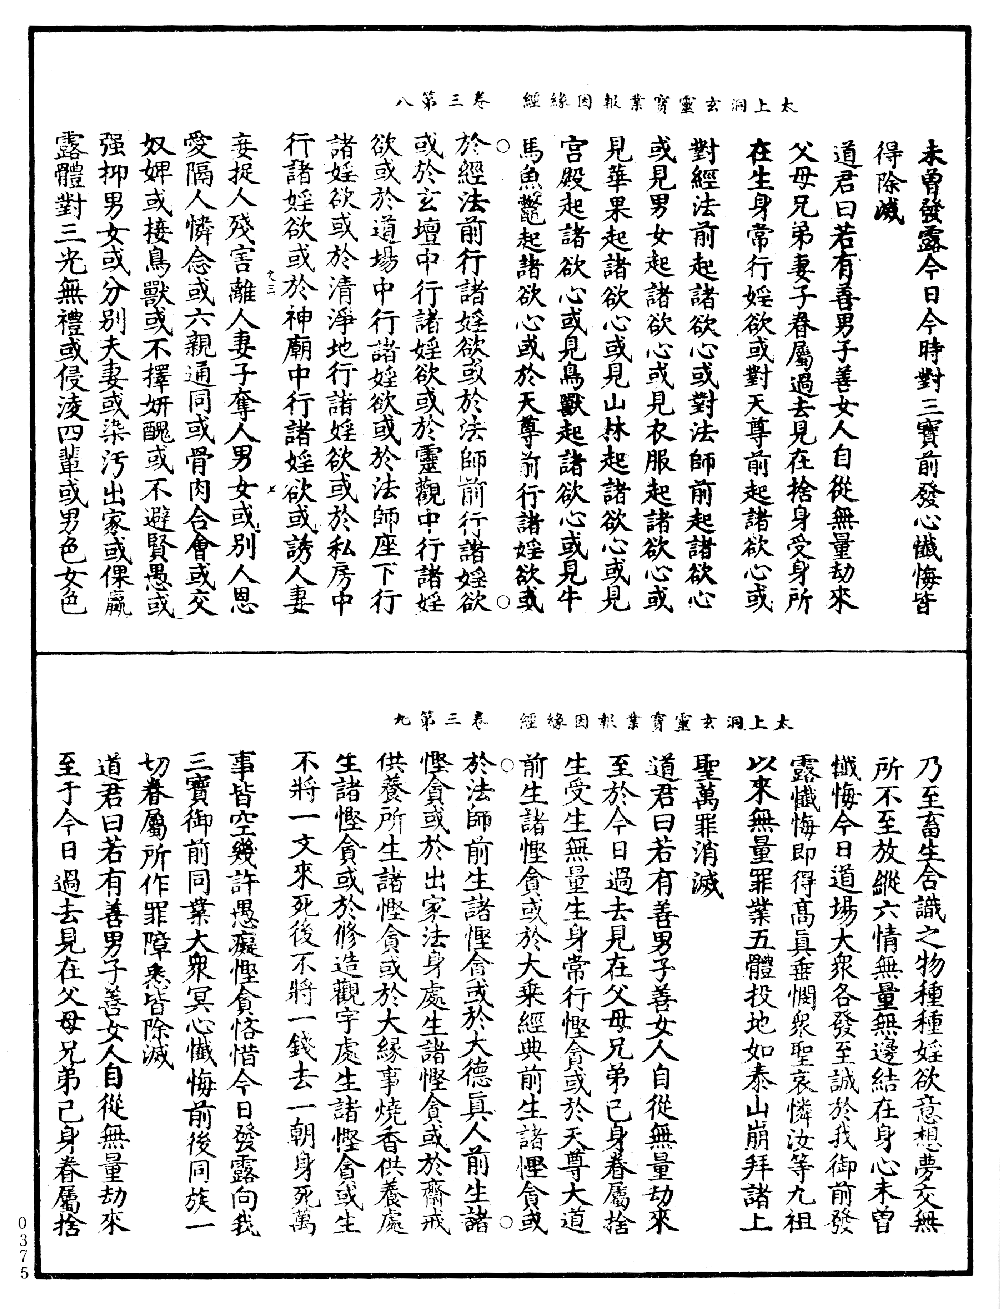 太上洞玄靈寶業報因緣經　卷三第八
未曾發露今日今時對三寶前發心懺悔皆
得除滅
道君曰若有善男子善女人自從無量劫來
父母兄弟妻子眷屬過去見在捨身受身所
在生身常行婬欲或對天尊前起諸欲心或
對經法前起諸欲心或對法師前起諸欲心
或見男女起諸欲心或見衣服起諸欲心或
見華果起諸欲心或見山林起諸欲心或見
宮殿起諸欲心或見鳥獸起諸欲心或見牛
馬魚鼈起諸欲心或於天尊前行諸婬欲或
於經法前行諸婬欲或於法師前行諸婬欲
或於玄壇中行諸婬欲或於靈觀中行諸婬
欲或於道場中行諸婬欲或於法師座下行
諸婬欲或於清淨地行諸婬欲或於私房中
行諸婬欲或於神廟中行諸婬欲或誘人妻
妾捉人殘害離人妻子奪人男女或別人恩
愛隔人憐念或六親通同或骨肉合會或交
奴婢或接鳥獸或不擇妍醜或不避賢愚或
强抑男女或分別夫妻或染汚出家或倮羸
露體對三光無禮或侵淩四輩或男色女色
太上洞玄靈寶業報因緣經　卷三第九
乃至畜生含識之物種種婬欲意想夢交無
所不至放縱六情無量無邊結在身心未曾
懺悔今日道場大衆各發至誠於我御前發
露懺悔即得高真垂憫衆聖哀憐汝等九祖
以來無量罪業五體投地如泰山崩拜諸上
聖萬罪消滅
道君曰若有善男子善女人自從無量劫來
至於今日過去見在父母兄弟己身眷屬捨
生受生無量生身常行慳貪或於天尊大道
前生諸慳貪或於大乘經典前生諸慳貪或
於法師前生諸慳貪或於大德真人前生諸
慳貪或於出家法身處生諸慳貪或於齋戒
供養所生諸慳貪或於大緣事燒香供養處
生諸慳貪或於修造觀宇處生諸慳貪或生
不將一文來死後不將一錢去一朝身死萬
事皆空幾許愚癡慳貪悋惜今日發露向我
三寶御前同業大衆冥心懺悔前後同族一
切眷屬所作罪障悉皆除滅
道君曰若有善男子善女人自從無量劫來
至于今日過去見在父母兄弟己身眷屬捨
0375